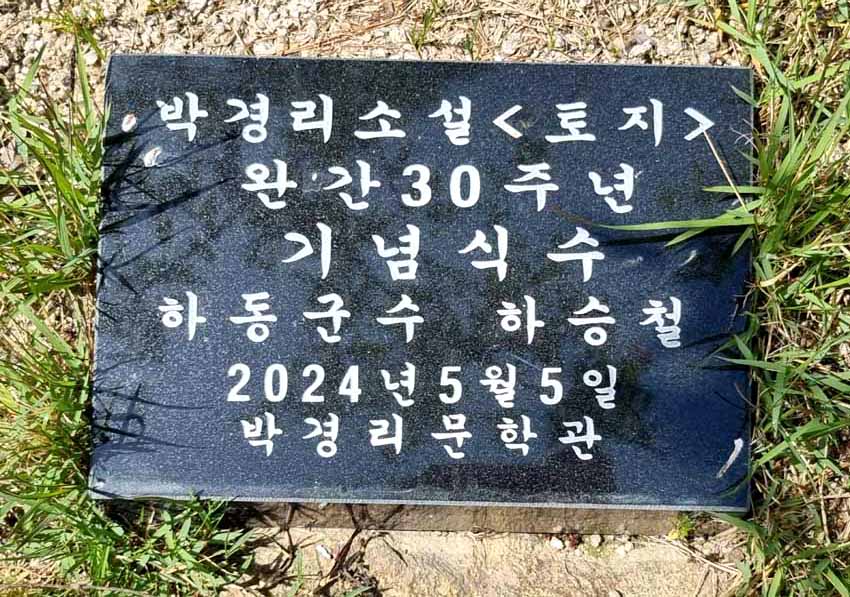 박경리소설<토지>
완간30주년
기념식수
하동군수 하승철
2024년5월5일
박경리문학관